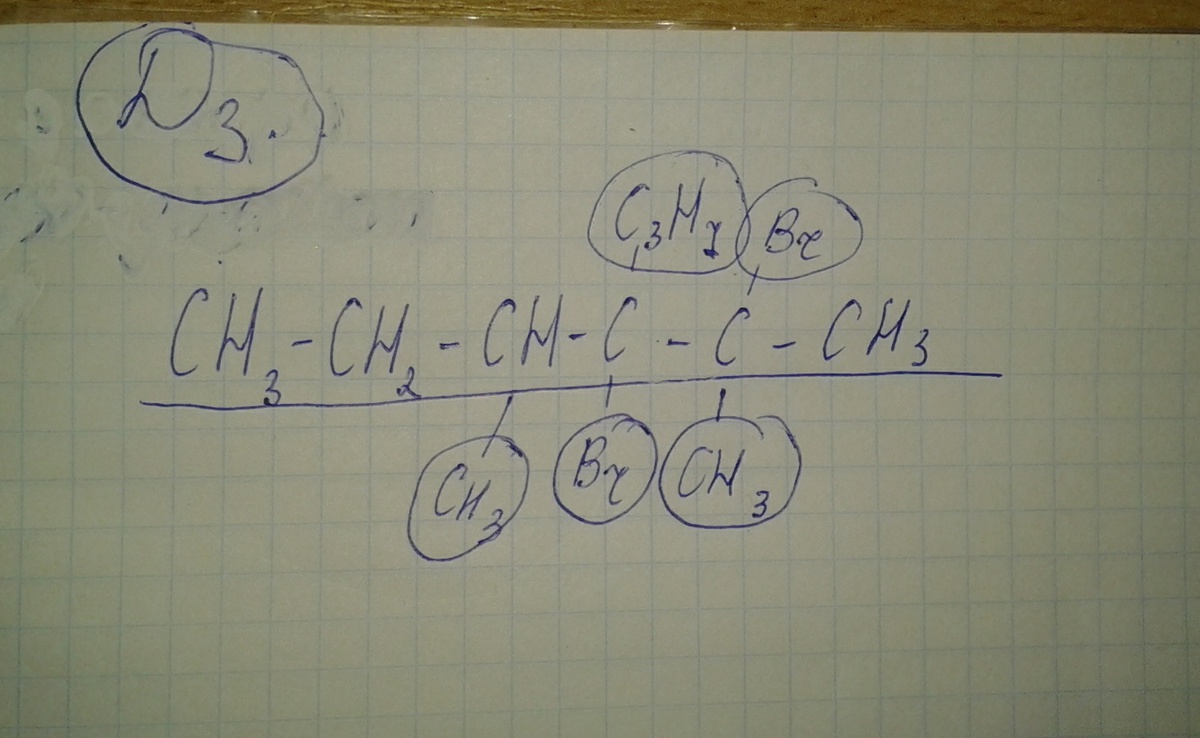 D3.
C3H7 Br
CH3-CH2-CH-C-C-CH3
CH3 Br CH3